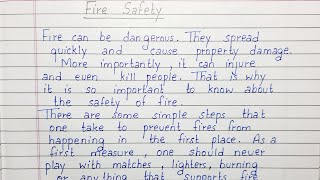 Fire Safety
Fire can be dangerous. They spread
quickly and cause property damage.
More importantly, it can injure
and even kill people. That is why
it is so important to know about
the safety of fire.
There are some simple steps that
one take to prevent fires from
happening in the first place. As a
first measure, one should never
play with matches, lighters, burning
or anything that supports fire